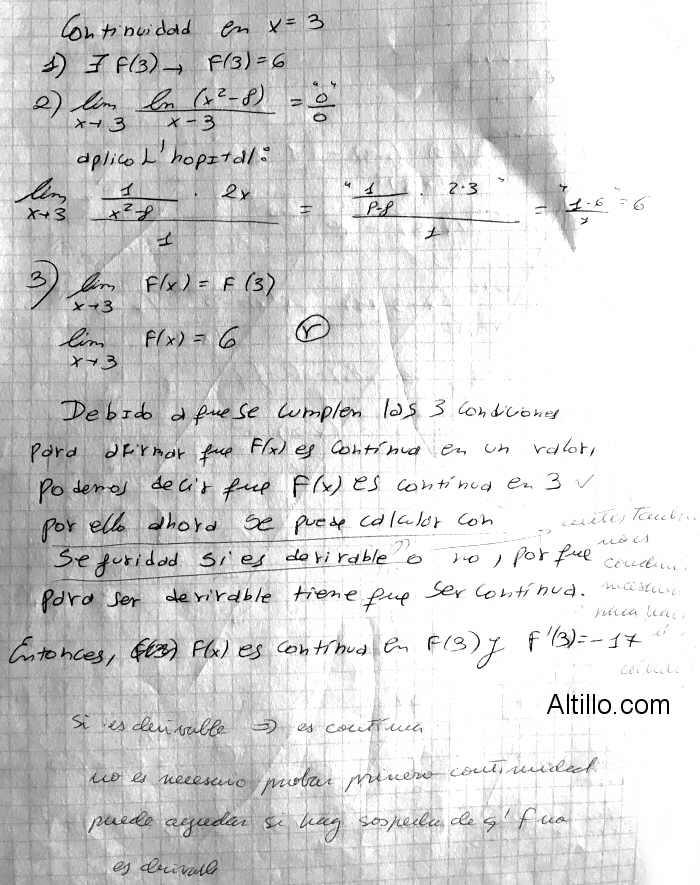 Continuidad en x = 3
1) ∃ F(3) → F(3) = 6
2) lim x→3 ln (x²-8) / x-3 = "0"/0
aplico L'hopital:
lim x→3 1/(x²-8) · 2x / 1 = "1/(9-8) · 2·3" / 1 = "1·6"/1 = 6
3) lim x→3 F(x) = F(3)
lim x→3 F(x) = 6 (V)
Debido a que se cumplen las 3 condiciones
para afirmar que F(x) es contínua en un valor,
podemos decir que F(x) es contínua en 3 ✓
por ello ahora se puede calcular con
seguridad si es derivable o no, por que
para ser derivable tiene que ser contínua.
Entonces, F(x) es contínua en F(3) y F'(3) = -17
Altillo.com
si es derivable ⇒ es continua
no es necesario probar primero continuidad
puede ayudar si hay sospecha de q' f no
es derivable